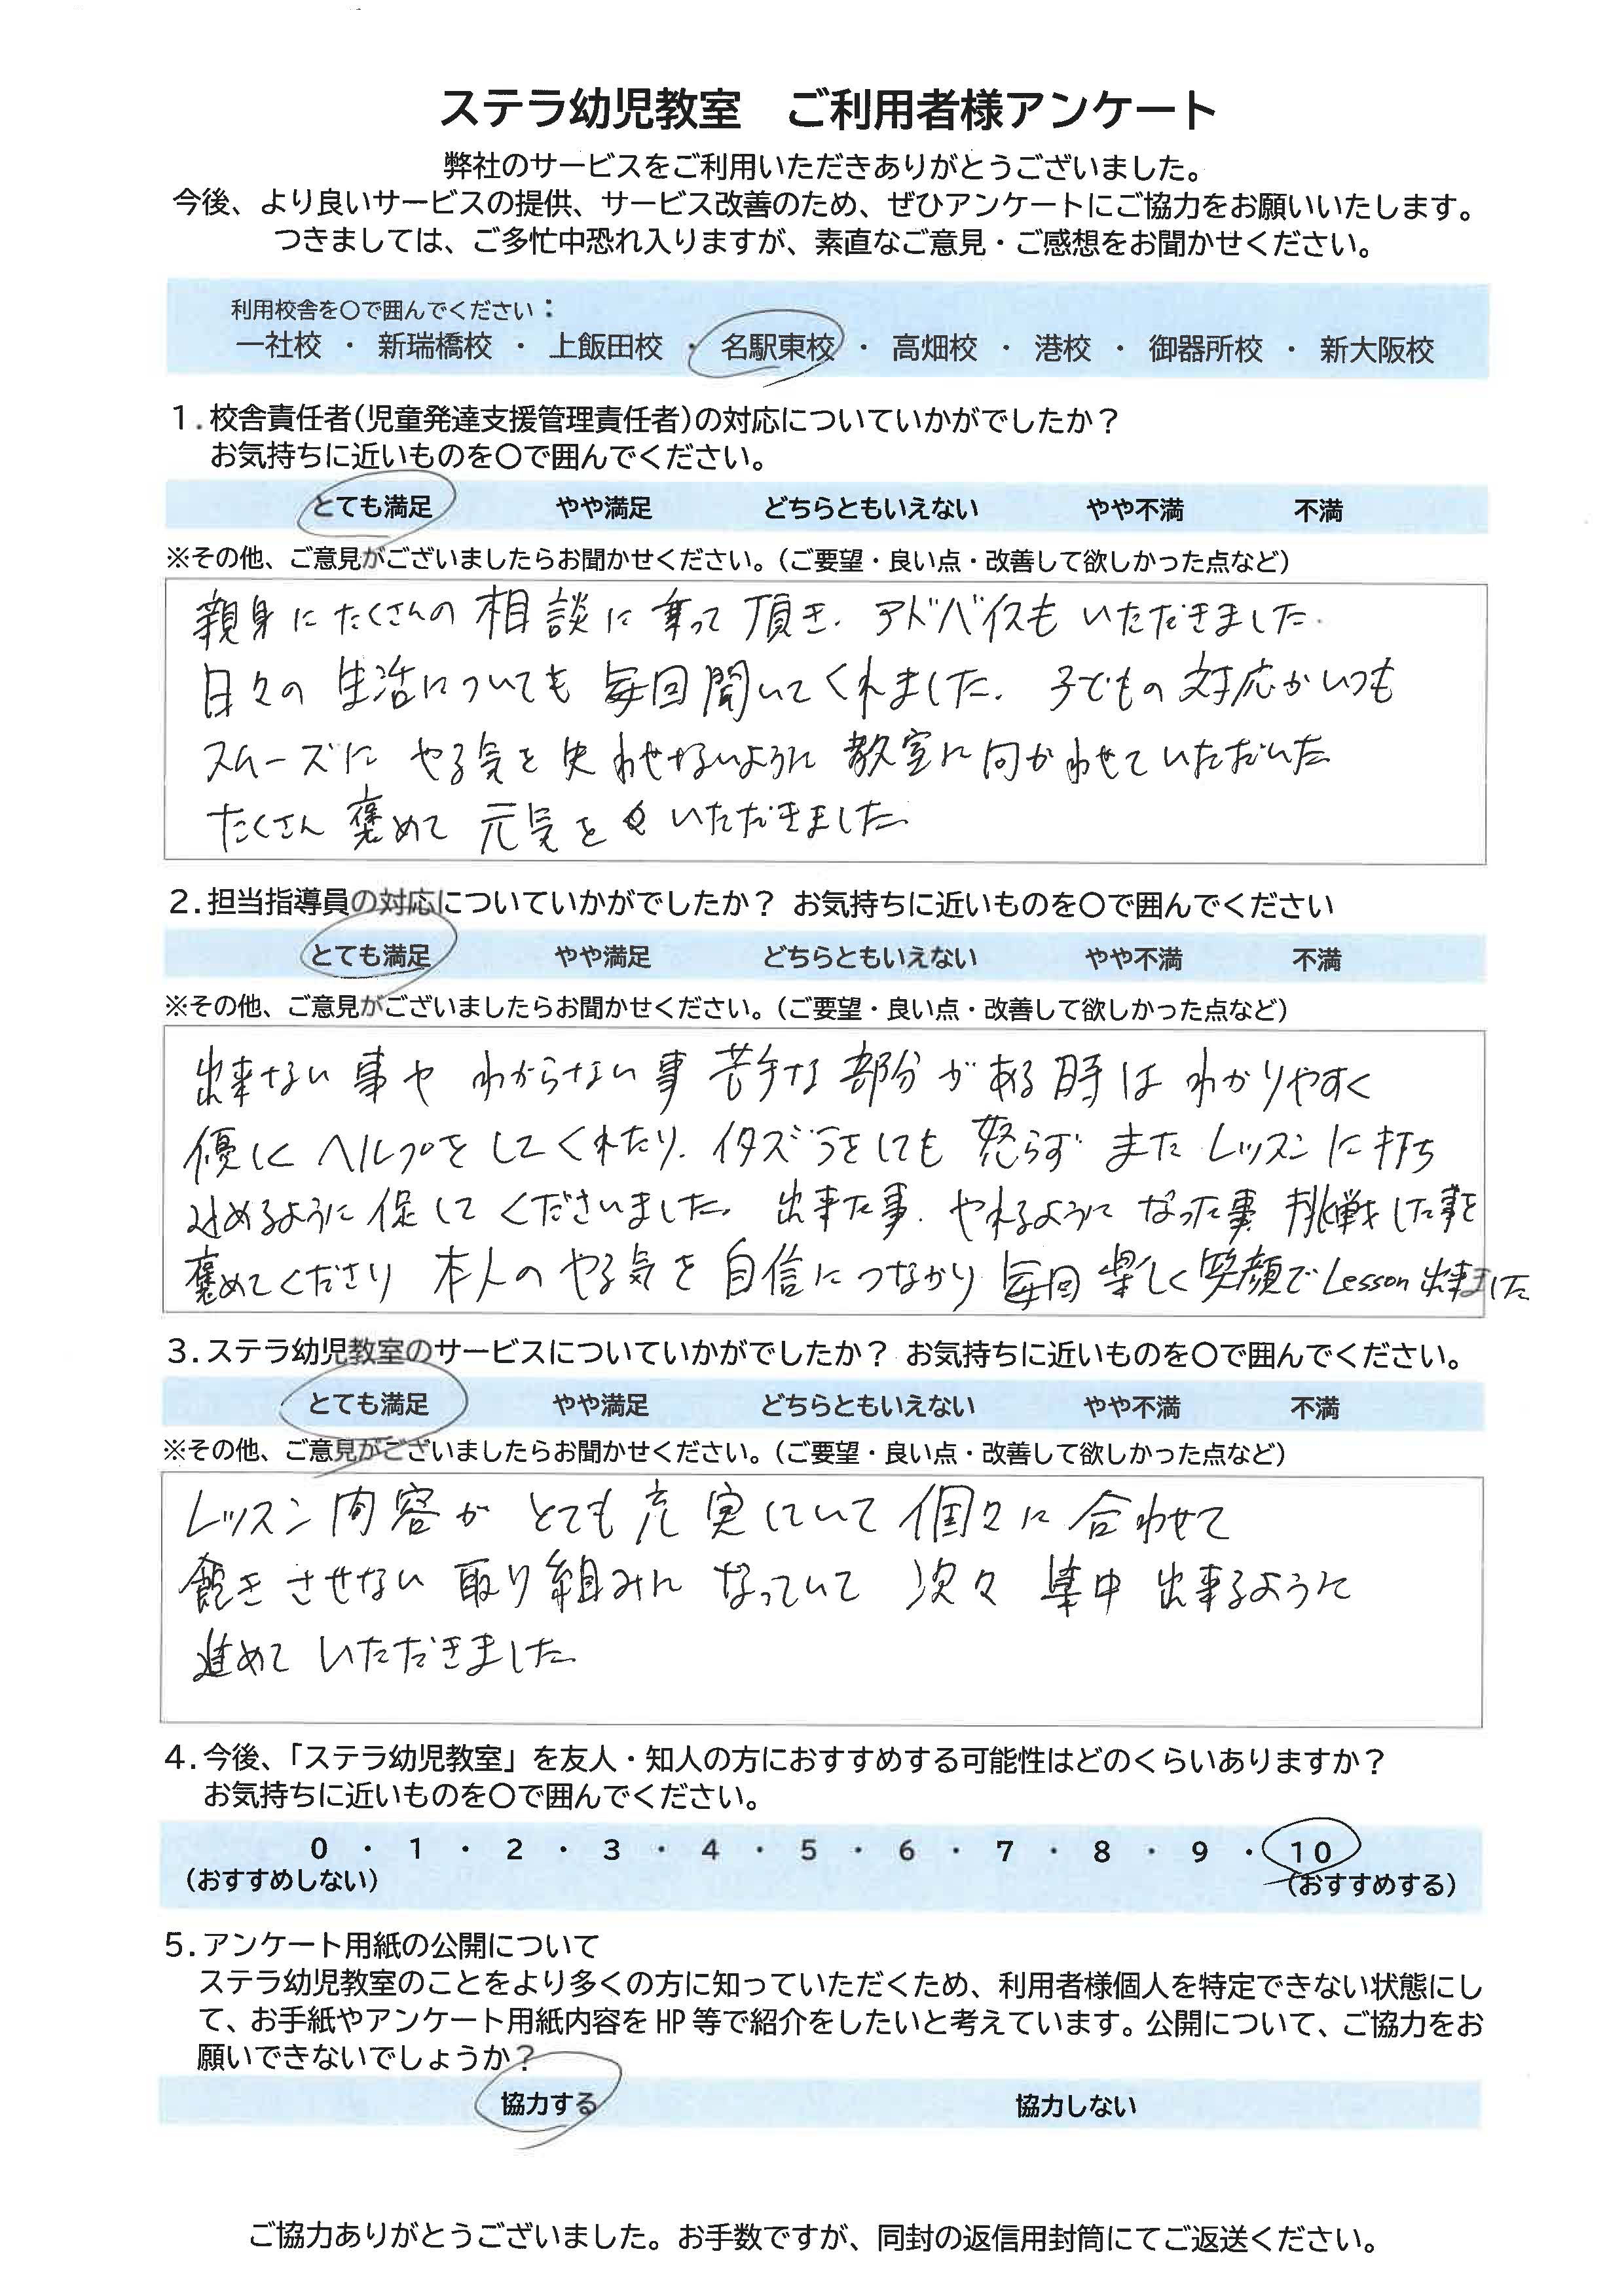 ステラ幼児教室　ご利用者様アンケート
弊社のサービスをご利用いただきありがとうございました。
今後、より良いサービスの提供、サービス改善のため、ぜひアンケートにご協力をお願いいたします。
つきましては、ご多忙中恐れ入りますが、素直なご意見・ご感想をお聞かせください。
利用校舎を〇で囲んでください：
一社校 ・ 新瑞橋校 ・ 上飯田校 ・ 名駅東校 ・ 高畑校 ・ 港校 ・ 御器所校 ・ 新大阪校
1．校舎責任者（児童発達支援管理責任者）の対応についていかがでしたか？
お気持ちに近いものを〇で囲んでください。
とても満足 やや満足 どちらともいえない やや不満 不満
※その他、ご意見がございましたらお聞かせください。（ご要望・良い点・改善して欲しかった点など）
親身にたくさんの相談に乗って頂き、アドバイスもいただきました。
日々の生活についても毎回聞いてくれました。子どもの対応がいつも
スムーズに やる気を失わせないように 教室に向かわせていただいた
たくさん 褒めて 元気を いただきました
2．担当指導員の対応についていかがでしたか？ お気持ちに近いものを〇で囲んでください
とても満足 やや満足 どちらともいえない やや不満 不満
※その他、ご意見がございましたらお聞かせください。（ご要望・良い点・改善して欲しかった点など）
出来ない事や わからない事 苦手な部分がある時は わかりやすく
優しく ヘルプをしてくれたり、イタズラをしても 怒らず また レッスンに打ち
込めるように 促して くださいました。出来た事、やれるように なった事 挑戦した事を
褒めてくださり 本人の やる気を 自信に つながり 毎回 楽しく 笑顔で Lesson 出来ました
3．ステラ幼児教室のサービスについていかがでしたか？ お気持ちに近いものを〇で囲んでください。
とても満足 やや満足 どちらともいえない やや不満 不満
※その他、ご意見がございましたらお聞かせください。（ご要望・良い点・改善して欲しかった点など）
レッスン内容が とても充実していて 個々に 合わせて
飽きさせない 取り組みに なっていて 次々 集中 出来るように
進めて いただきました
4．今後、「ステラ幼児教室」を友人・知人の方におすすめする可能性はどのくらいありますか？
お気持ちに近いものを〇で囲んでください。
0 ・ 1 ・ 2 ・ 3 ・ 4 ・ 5 ・ 6 ・ 7 ・ 8 ・ 9 ・ 10
（おすすめしない） （おすすめする）
5．アンケート用紙の公開について
ステラ幼児教室のことをより多くの方に知っていただくため、利用者様個人を特定できない状態にし
て、お手紙やアンケート用紙内容を HP 等で紹介をしたいと考えています。公開について、ご協力をお
願いできないでしょうか？
協力する 協力しない
ご協力ありがとうございました。お手数ですが、同封の返信用封筒にてご返送ください。